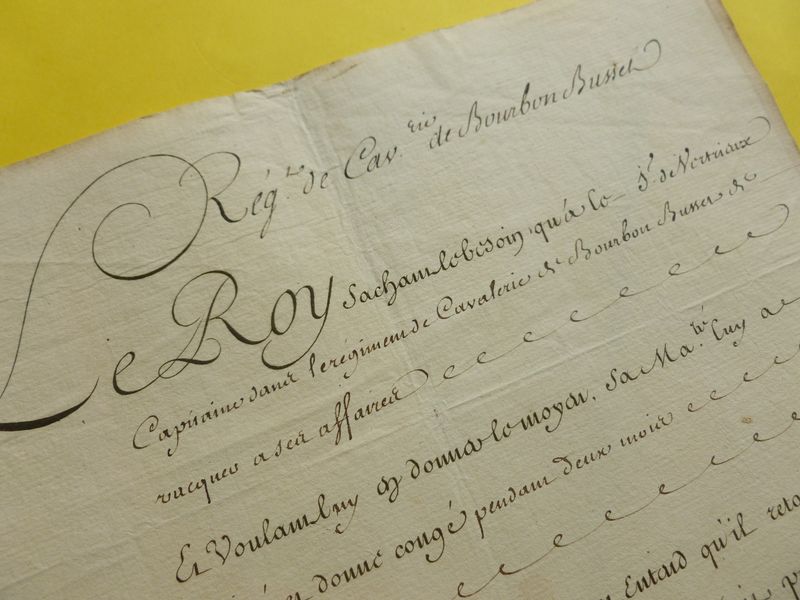 Régt. de Cav.rie de Bourbon Busset
Le Roy Sachant le besoin qu'a le Sr. de
Capitaine dans le régiment de Cavalerie de Bourbon Busset de
vacquer a ses affaires
Et Voulant luy en donner le moyen, Sa Ma.té luy a
donné congé pendant deux mois
Entard qu'il